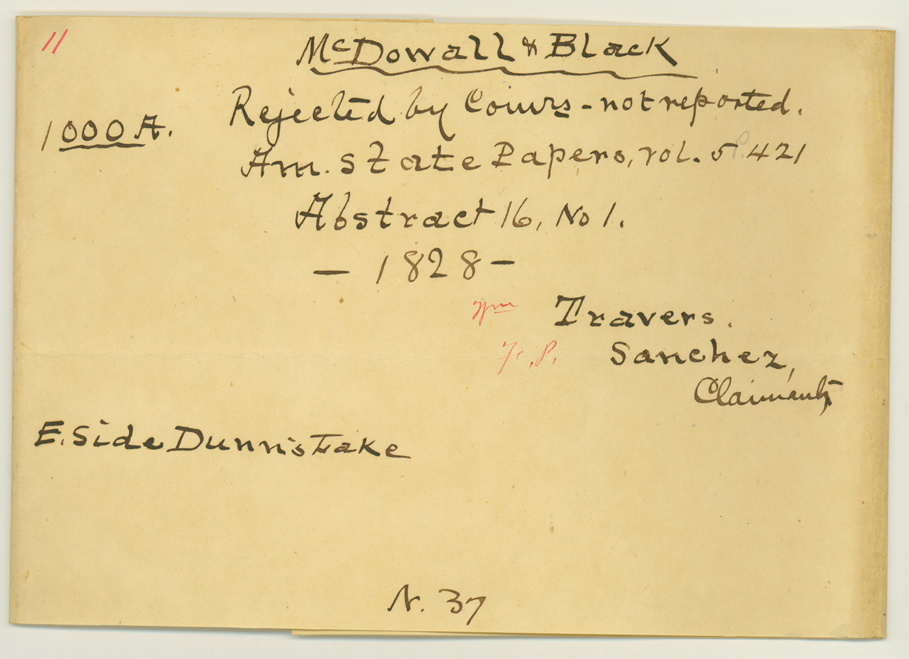 11
McDowall & Black
1000 A.
Rejected by Comrs - not reported.
Am. State Papers, vol. 5 P. 421
Abstract 16, No 1.
— 1828 —
Wm Travers.
F. P. Sanchez,
Claimants
E. Side Dunn's Lake
N. 37